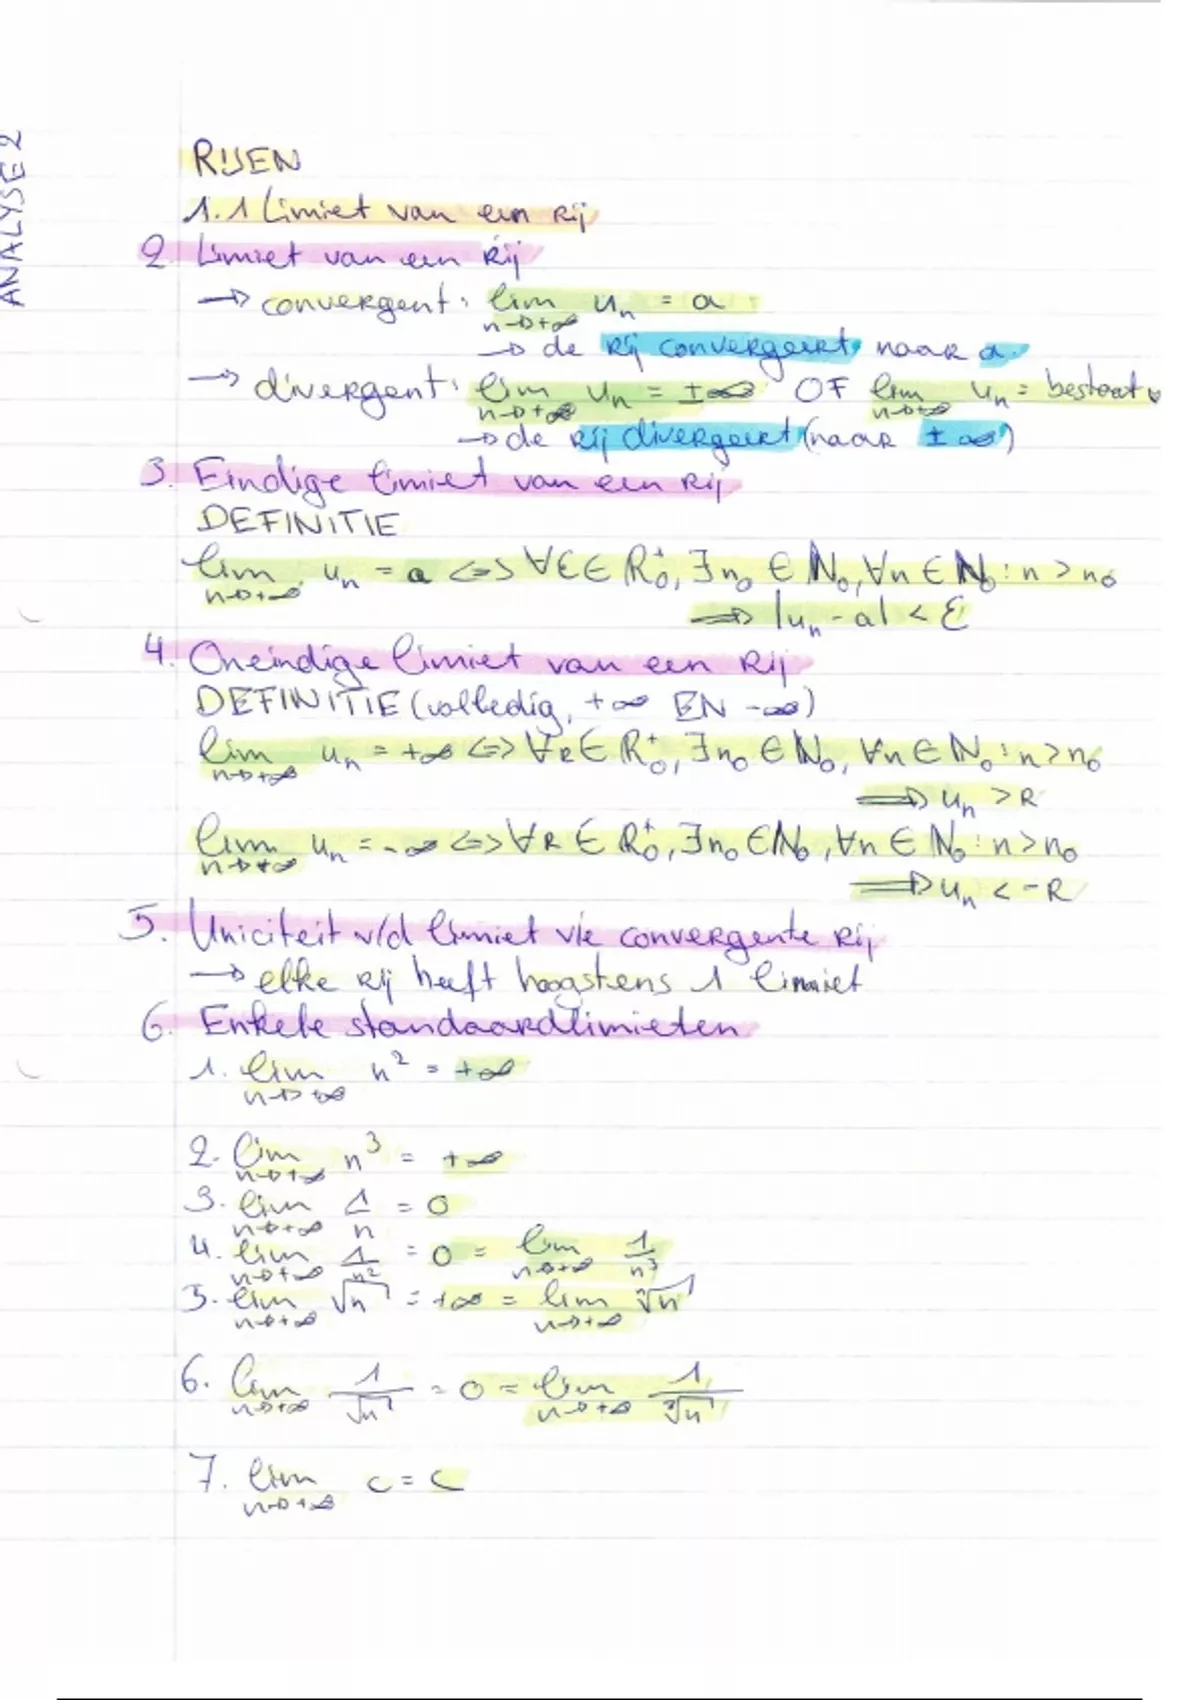 ANALYSE 2
RIJEN
1.1 Limiet van een rij
2. Limiet van een rij
→ convergent: lim n→+∞ uₙ = a
→ de rij convergeert naar a.
→ divergent: lim n→+∞ uₙ = ±∞ OF lim n→+∞ uₙ = bestaat
→ de rij divergeert (naar ±∞)
3. Eindige limiet van een rij
DEFINITIE
lim n→+∞ uₙ = a <=> ∀ε ∈ ℝ₀⁺, ∃n₀ ∈ ℕ₀, ∀n ∈ ℕ₀: n > n₀
⟹ |uₙ - a| < ε
4. Oneindige limiet van een rij
DEFINITIE (volledig, +∞ EN -∞)
lim n→+∞ uₙ = +∞ <=> ∀R ∈ ℝ₀⁺, ∃n₀ ∈ ℕ₀, ∀n ∈ ℕ₀: n > n₀
⟹ uₙ > R
lim n→+∞ uₙ = -∞ <=> ∀R ∈ ℝ₀⁺, ∃n₀ ∈ ℕ₀, ∀n ∈ ℕ₀: n > n₀
⟹ uₙ < -R
5. Uniciteit v/d limiet v/e convergente rij
→ elke rij heeft hoogstens 1 limiet
6. Enkele standaardlimieten
1. lim n→+∞ n² = +∞
2. lim n→+∞ n³ = +∞
3. lim n→+∞ 1/n = 0
4. lim n→+∞ 1/n² = 0 = lim n→+∞ 1/n³
5. lim n→+∞ √n = +∞ = lim n→+∞ ³√n
6. lim n→+∞ 1/√n = 0 = lim n→+∞ 1/³√n
7. lim n→+∞ c = c